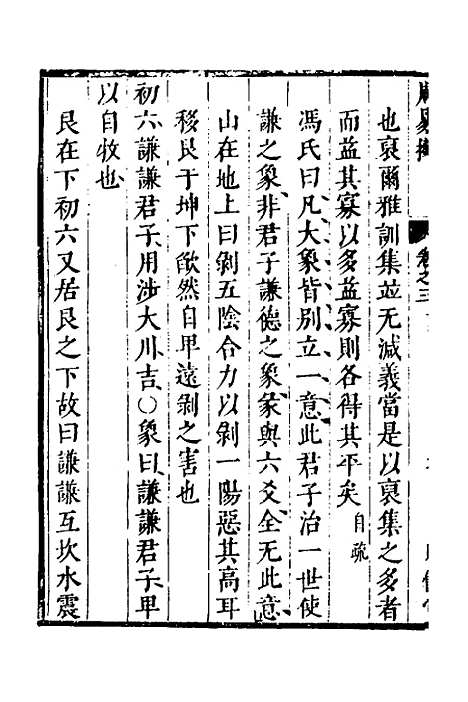 卷之三
也裒爾雅訓集並无減義當是以裒集之多者
而益其寡以多益寡則各得其平矣自疏
馮氏曰凡大象皆别立一意此君子治一世使
謙之象非君子謙德之象彖與六爻全无此意
山在地上曰剝五陰合力以剝一陽惡其高耳
移艮于坤下欿然自卑遠剝之害也
初六謙謙君子用涉大川吉〇象曰謙謙君子卑
以自牧也
艮在下初六又居艮之下故曰謙謙互坎水震